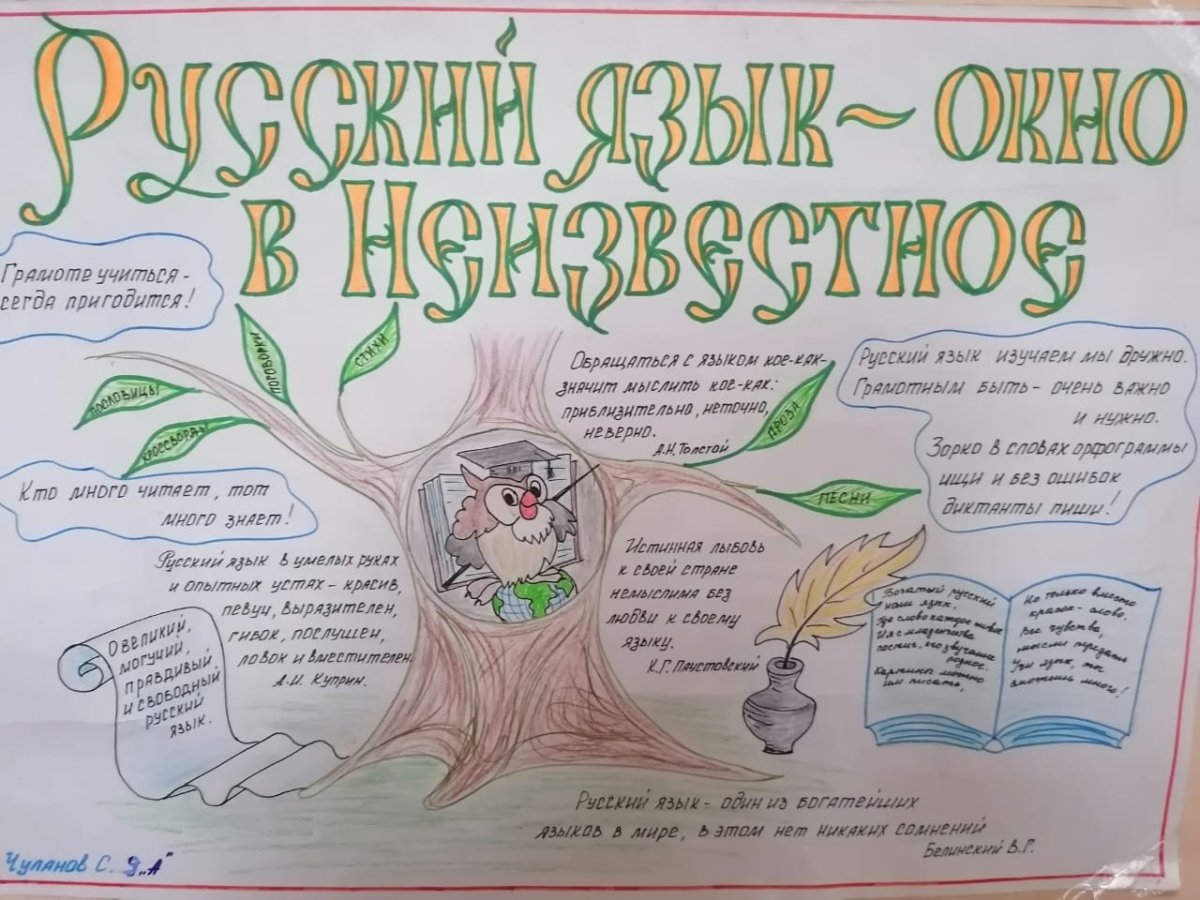 Русский язык - окно
в Неизвестное
Грамоте учиться -
сегда пригодится!
пословицы
поговорки
стихи
кроссворды
Кто много читает, тот
много знает!
Обращаться с языком кое-как-
значит мыслить кое-как:
приблизительно, неточно,
неверно.
А.Н.Толстой
проза
песни
Русский язык изучаем мы дружно.
Грамотным быть - очень важно
и нужно.
Зорко в словах орфограммы
ищи и без ошибок
диктанты пиши!
Русский язык в умелых руках
и опытных устах - красив,
певуч, выразителен,
гибок, послушен,
ловок и вместителен.
А.И. Куприн.
Истинная любовь
к своей стране
немыслима без
любви к своему
языку.
К.Г.Паустовский
О великий,
могучий,
правдивый
и свободный
русский
язык.
Богатый русский
наш язык,
Где слово каждое
И я с младенчества
постиг, его звучание
родное.
Картины можно
им писать,
Но только вместо
красок - слово.
Все чувства,
мысли передать
Учи язык, ты
сможешь много!
Русский язык - один из богатейших
языков в мире, в этом нет никаких сомнений
Белинский В.Г.
Чуланов С. 9 "А"